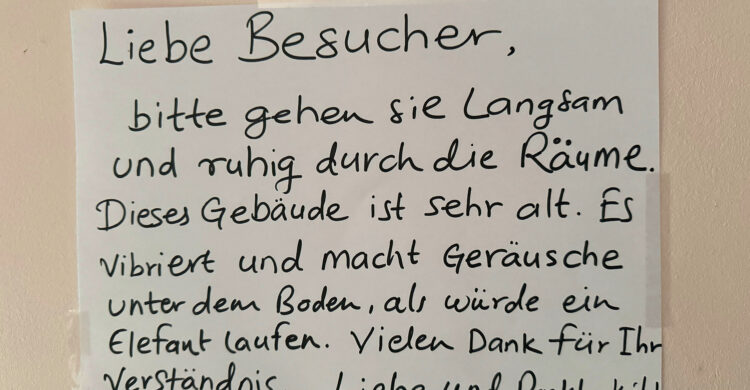 Liebe Besucher,
bitte gehen sie Langsam
und ruhig durch die Räume.
Dieses Gebäude ist sehr alt. Es
vibriert und macht Geräusche
unter dem Boden, als würde ein
Elefant laufen. Vielen Dank für Ihr
Verständnis. Liebe und